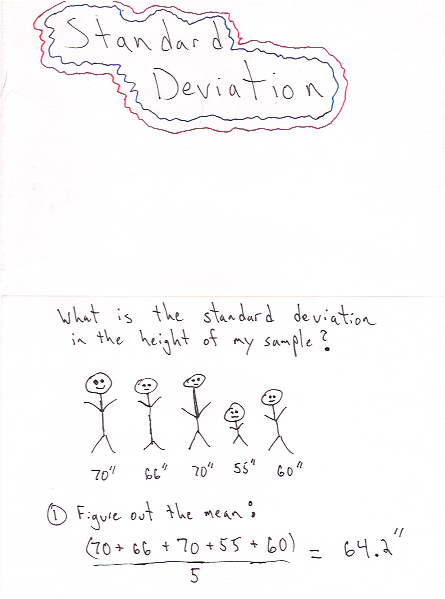 Standard
Deviation
What is the standard deviation
in the height of my sample?
70" 66" 70" 55" 60"
① Figure out the mean:
(70 + 66 + 70 + 55 + 60) = 64.2"
5